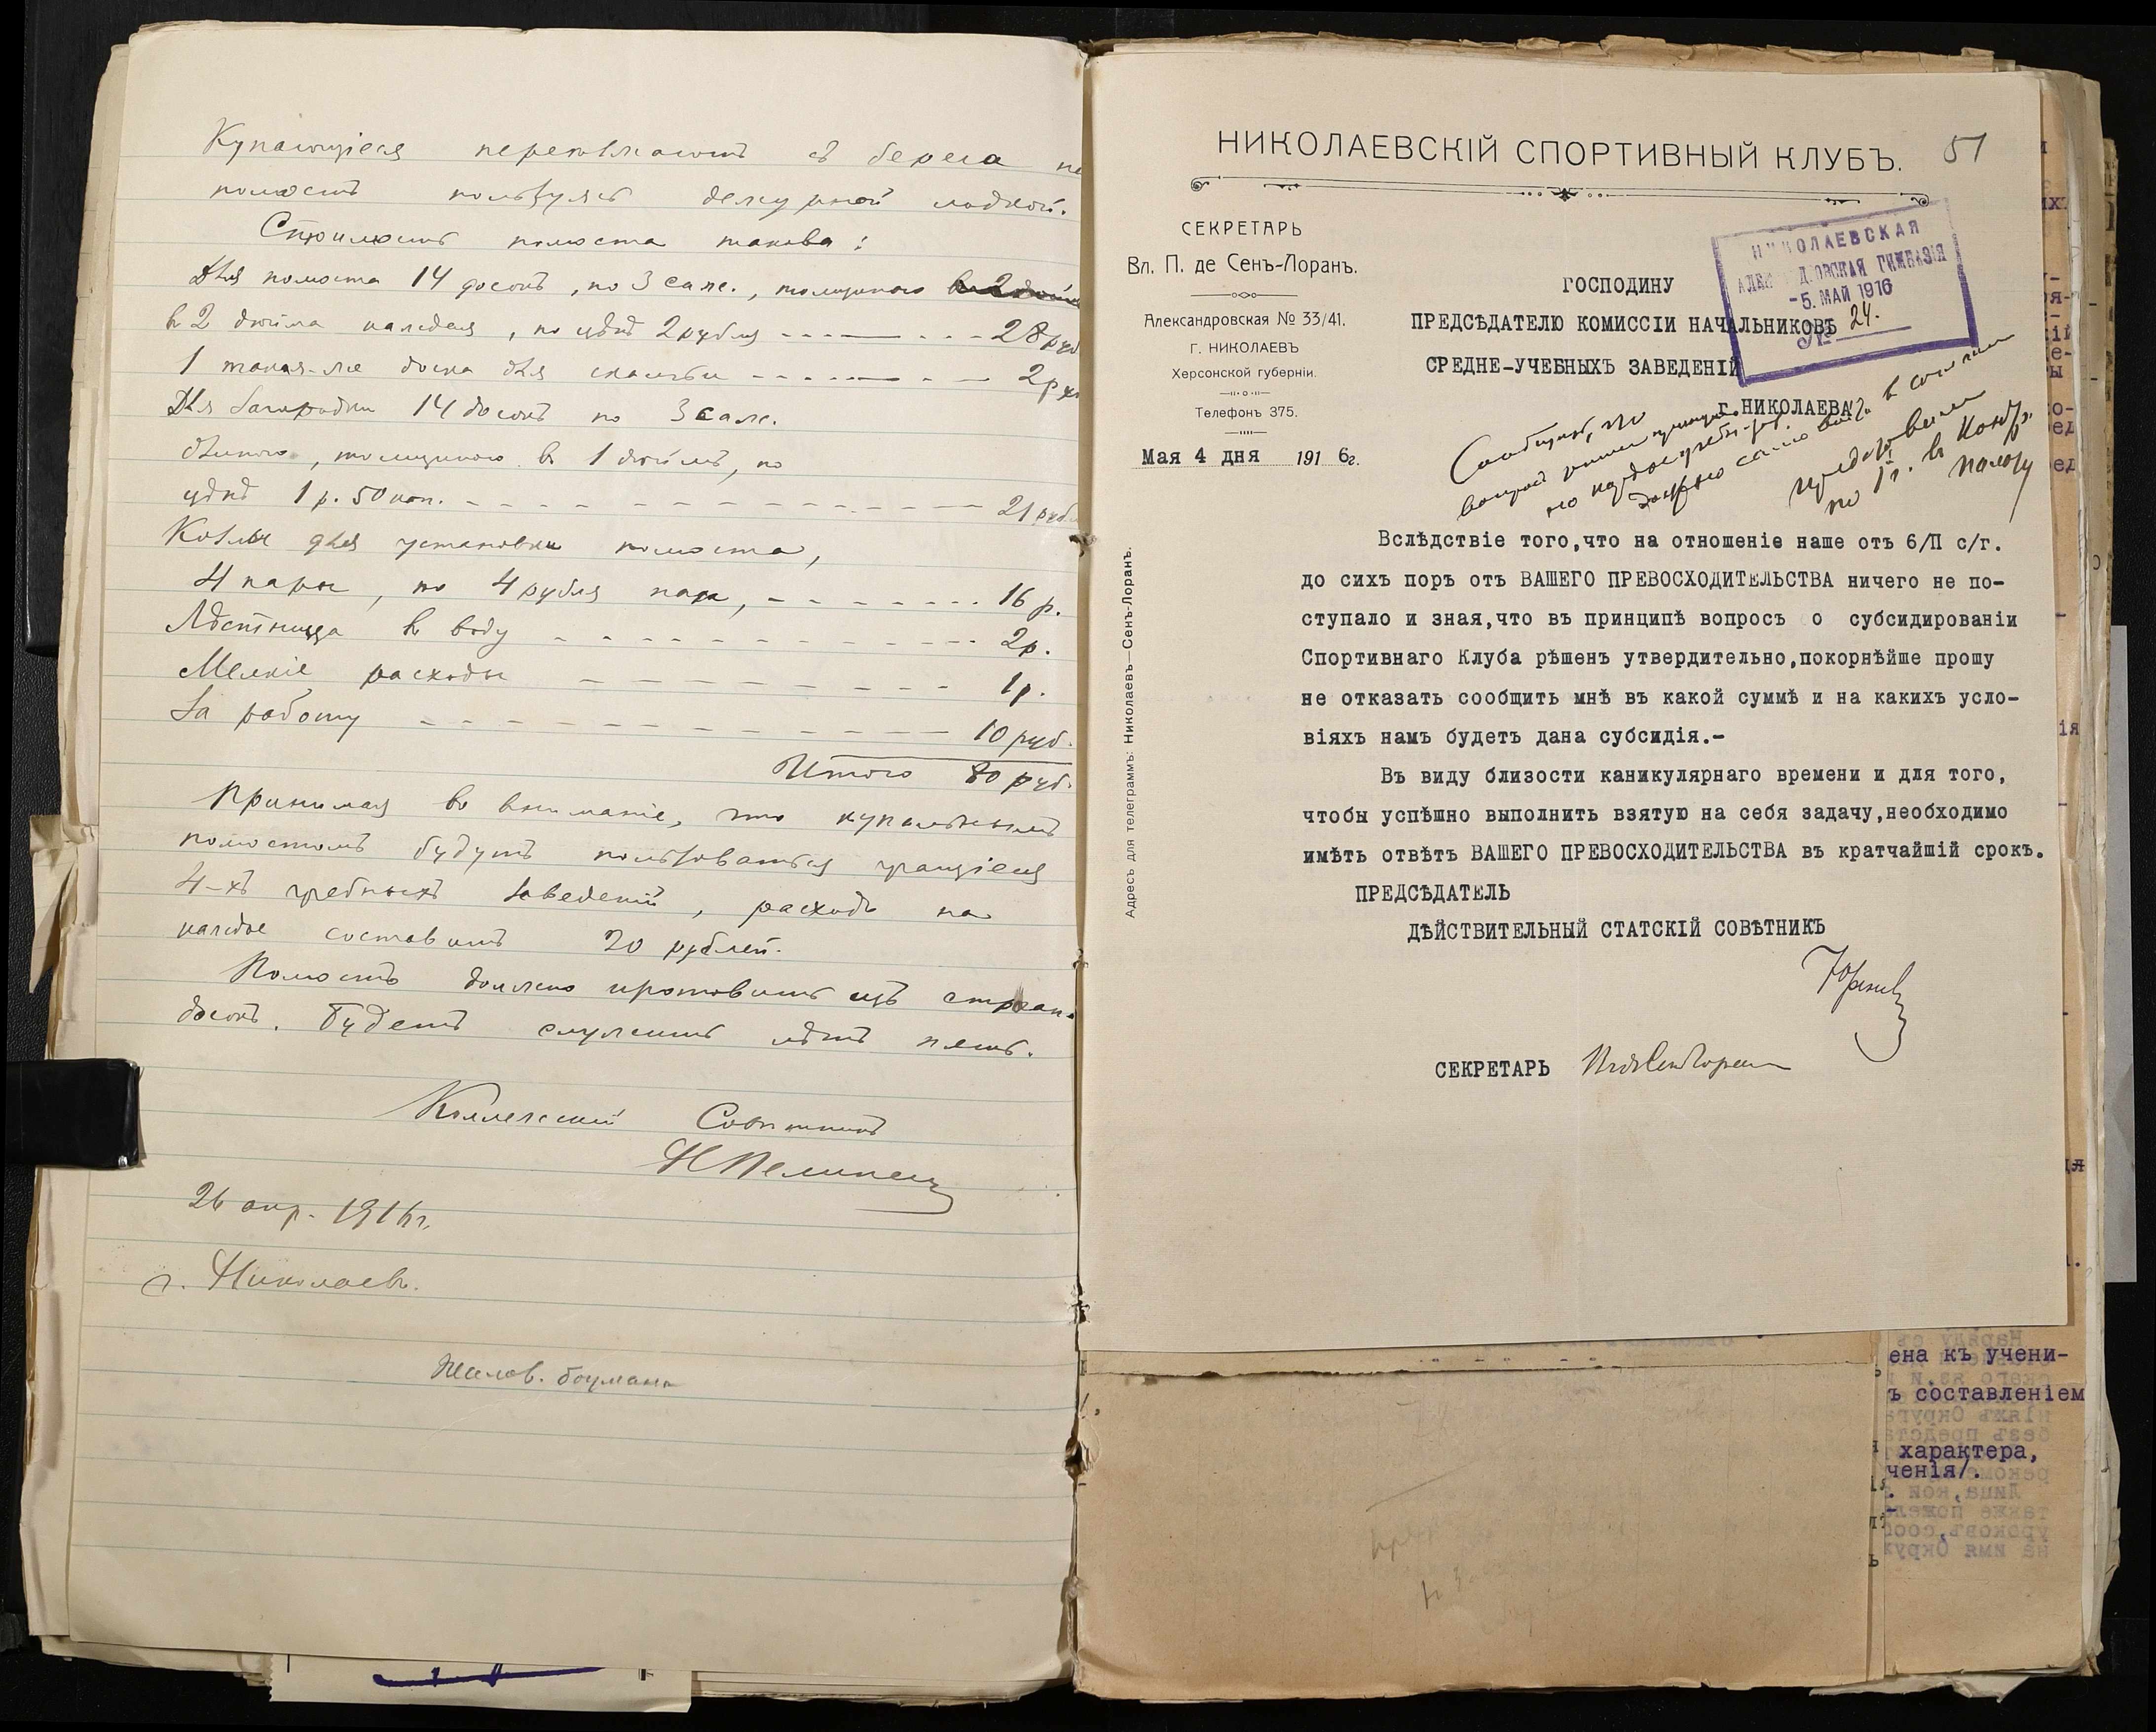 Купающіеся переѣзжаютъ съ берега на
помостъ пользуясь дежурной лодкой.
Стоимость помоста такова:
Для помоста 14 досокъ, по 3 саж., толщиною
въ 2 дюйма каждая, по цѣнѣ 2 рубля - - - - 28 руб
1 такая-же доска для скамьи - - - - 2 ру
Для загородки 14 досокъ по 3 саж.
длиною, толщиною въ 1 дюймъ, по
цѣнѣ 1 р. 50 коп. - - - - 21 руб.
Козлы для установки помоста,
4 пары, по 4 рубля пара, - - - - 16 р.
Лѣстница въ воду - - - - 2 р.
Мелкіе расходы - - - - 1 р.
За работу - - - - 10 руб.
Итого 80 руб.
Принимая во вниманіе, что купальнымъ
помостомъ будутъ пользоваться учащіеся
4-хъ учебныхъ заведеній, расходъ на
каждое составитъ 20 рублей.
Помостъ должно изготовить изъ строган.
досокъ. Будетъ служить лѣтъ пять.
Коллежскій Совѣтникъ
26 апр. 1916 г.
г. Николаевъ.
Жалов. боцмана
НИКОЛАЕВСКІЙ СПОРТИВНЫЙ КЛУБЪ.
51
СЕКРЕТАРЬ
Вл. П. де Сенъ-Лоранъ.
Александровская № 33/41.
Г. НИКОЛАЕВЪ
Херсонской губерніи.
Телефонъ 375.
Мая 4 дня 1916г.
Адресъ для телеграммъ: Николаевъ—Сенъ-Лоранъ.
НИКОЛАЕВСКАЯ
АЛЕКСАНДРОВСКАЯ ГИМНАЗІЯ
-5. МАЙ 1916
№ 24.
ГОСПОДИНУ
ПРЕДСѢДАТЕЛЮ КОМИССІИ НАЧАЛЬНИКОВЪ
СРЕДНЕ-УЧЕБНЫХЪ ЗАВЕДЕНІЙ
г. НИКОЛАЕВА
Сообщить, что
вопросъ
Вслѣдствіе того,что на отношеніе наше отъ 6/П с/г.
до сихъ поръ отъ ВАШЕГО ПРЕВОСХОДИТЕЛЬСТВА ничего не по-
ступало и зная,что въ принципѣ вопросъ о субсидированіи
Спортивнаго Клуба рѣшенъ утвердительно,покорнѣйше прошу
не отказать сообщить мнѣ въ какой суммѣ и на какихъ усло-
віяхъ намъ будетъ дана субсидія.-
Въ виду близости каникулярнаго времени и для того,
чтобы успѣшно выполнить взятую на себя задачу,необходимо
имѣть отвѣтъ ВАШЕГО ПРЕВОСХОДИТЕЛЬСТВА въ кратчайшій срокъ.
ПРЕДСѢДАТЕЛЬ
ДѢЙСТВИТЕЛЬНЫЙ СТАТСКІЙ СОВѢТНИКЪ
СЕКРЕТАРЬ
ена къ учени-
ъ составленіем
характера,
ченія/.